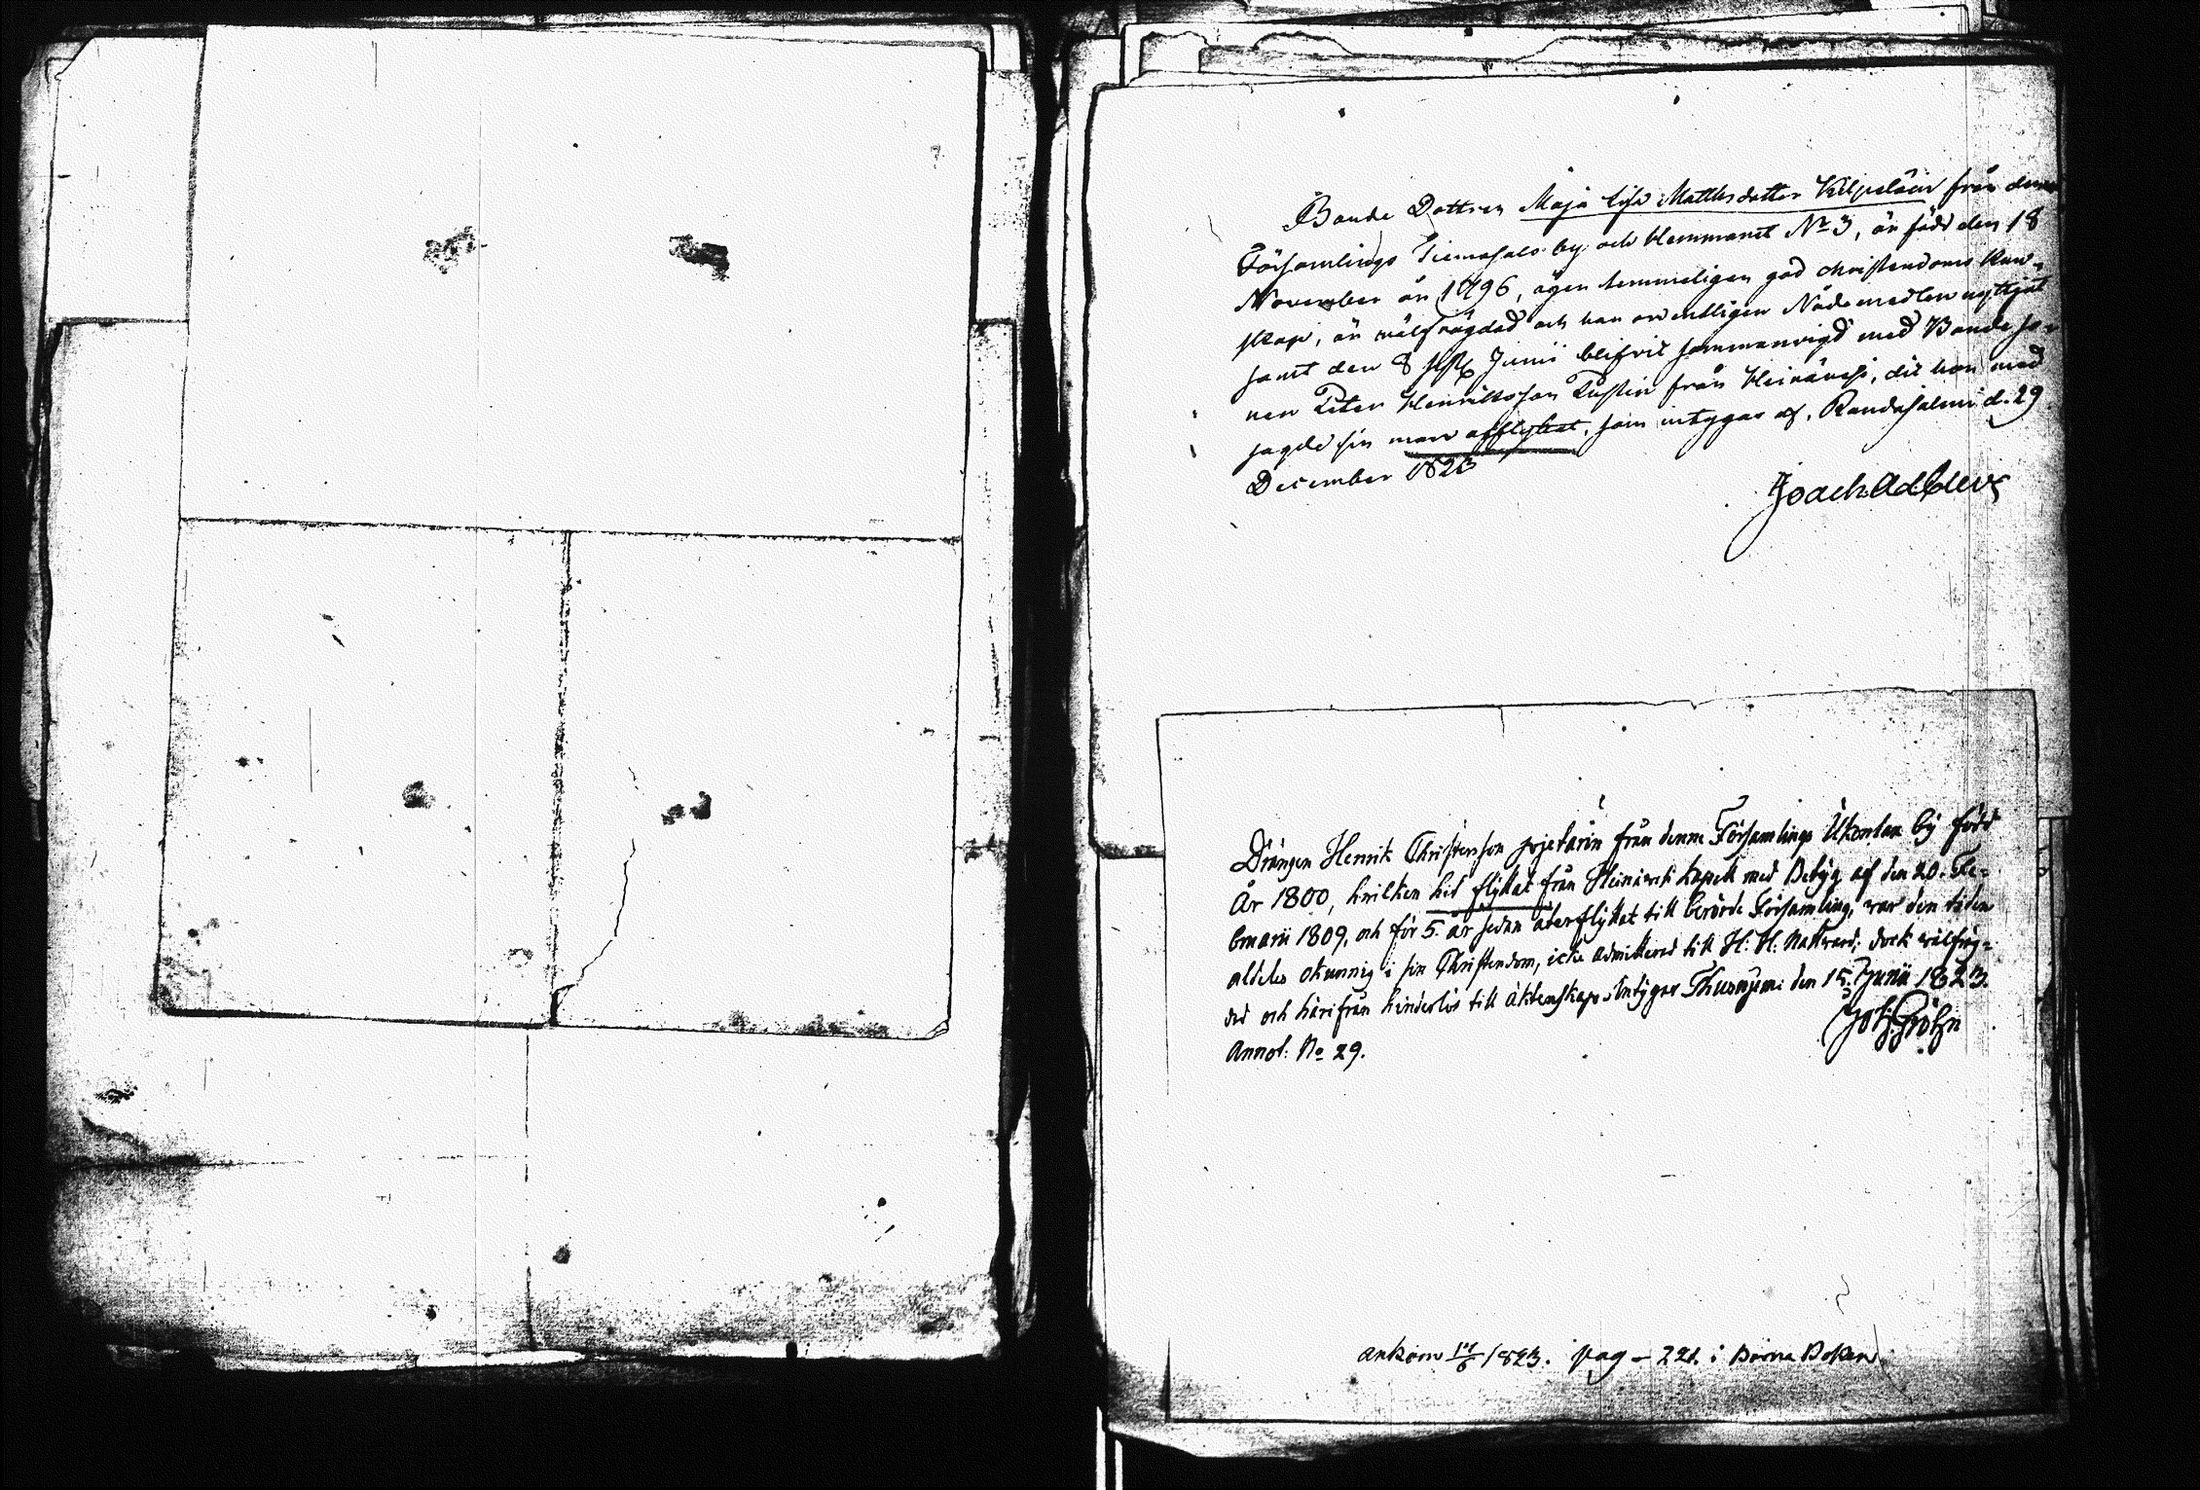 Bonde Dottren Maja Lisa Matthsdotter Kilpeläin från denna
Församlings Tiemasalo by och Hemmanet No 3, är född den 18
November år 1796, ägen temmeligen god christendoms kun-
skap, är wälfrägdad och har ordentligen Nådemedlen nyttjat
samt den 8 sistl. Junii blifvit sammanvigd med Bonde so-
nen Peter Henriksson Tustin från Heinävesi, dit hon med
sagde sin man afflyttat, som intygar af, Randasalmi d. 29
December 1823
Joach Ad
Drängen Henrik Christersson från denna Församlings Ukonlax by född
År 1800, hvilken hid flyttat från Heinävesi Capell med Betyg af den 20. Fe-
bruarii 1809, och för 5. år sedan återflyttat till berörde Församling, var den tiden
aldeles okunnig i sin Christendom, icke admitterad till H: H: Nattvard; dock wälfrägd-
dad och härifrån hinderlös till äktenskap. Intygar Thusniemi den 15. Junii 1823.
Joh: Gröhn
Annot: No 29.
ankom 1823. pag - 221. i Barna Boken